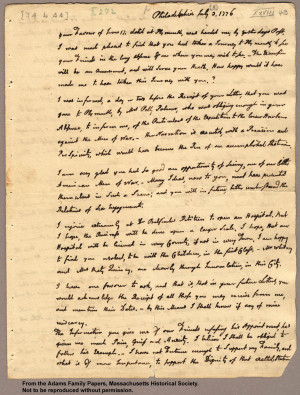 Philadelphia July 3, 1776
your Favour of June 17, dated at Plymouth was handed me by yesterdays Post.
I was much pleased to find that you had taken a Journey to Plymouth to see
your Friends in the long Absence of one whom you may wish to see. The Excursion
will be an Amusement, and will serve your Health. How happy would it have
made me to have taken this Journey with you?
I was informed, a day or two before the Receipt of your Letter, that you was
gone to Plymouth, by Mrs. Polly Palmer, who was obliging enough in your
Absence, to inform me, of the Particulars of the Expedition to the lower Harbour
against the Men of War. Her Narration is executed with a Precision and
Perspicuity, which would have become the Pen of an accomplished Historian.
I am very glad you had so good an opportunity of seeing one of our little
American Men of War. Many Ideas, new to you, must have presented
themselves in such a Scene; and you will in future, better understand the
Relations of Sea Engagements.
I rejoice extremely at Dr. Bulfinches Petition to open an Hospital. But
I hope, the Business will be done upon a larger Scale. I hope, that one
Hospital will be licensed in every County, if not in every Town. I am happy
to find you resolved, to be with the Children, in the first Class. Mr. Whitney
and Mrs. Katy Quincy, are cleverly through Innoculation, in this City.
I have one favour to ask, and that is, that in your future Letters, you
would acknowledge the Receipt of all those you may receive from me,
and mention their Dates. By this Means I shall know if any of mine
miscarry.
The Information you give me of our Friends refusing his Appointment, has
given me much Pain, Grief and Anxiety. I believe I shall be obliged to
follow his Example. I have not Fortune enough to support my Family, and
what is of more Importance, to support the Dignity of that exalted Station.
From the Adams Family Papers, Massachusetts Historical Society.
Not to be reproduced without permission.